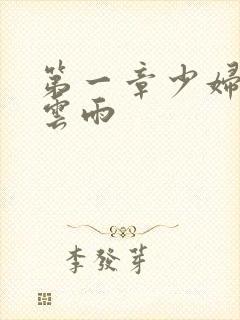 第一章少婦
雲雨
李發芽